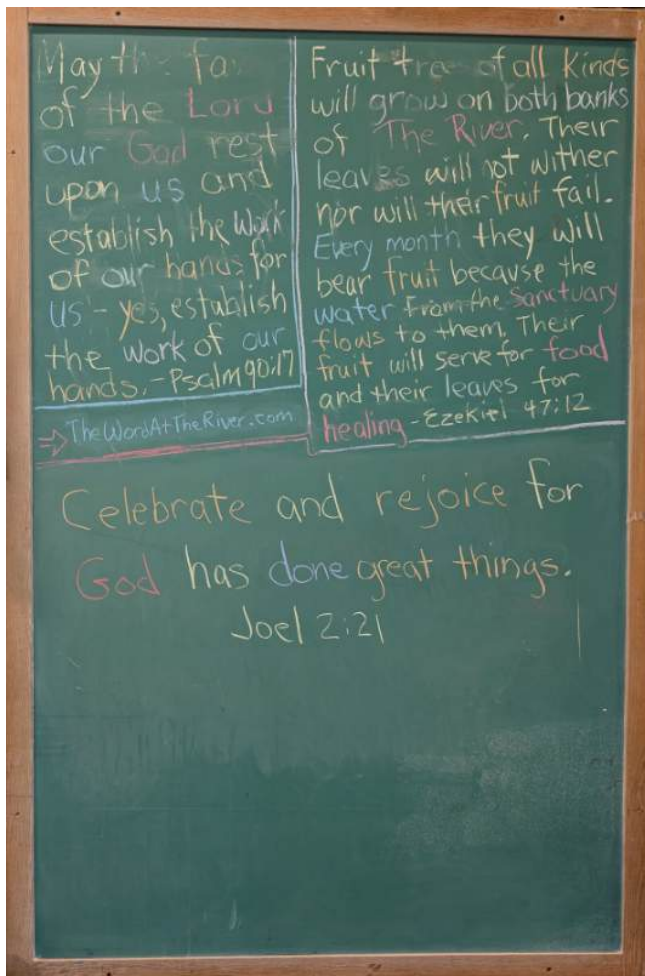 May the fa
of the Lord
our God rest
upon us and
establish the work
of our hands for
us - yes, establish
the work of our
hands. - Psalm 90:17
⇒ TheWordAtTheRiver.com
Fruit tre of all kinds
will grow on both banks
of The River. Their
leaves will not wither
nor will their fruit fail.
Every month they will
bear fruit because the
water from the sanctuary
flows to them. Their
fruit will serve for food
and their leaves for
healing - Ezekiel 47:12
Celebrate and rejoice for
God has done great things.
Joel 2:21